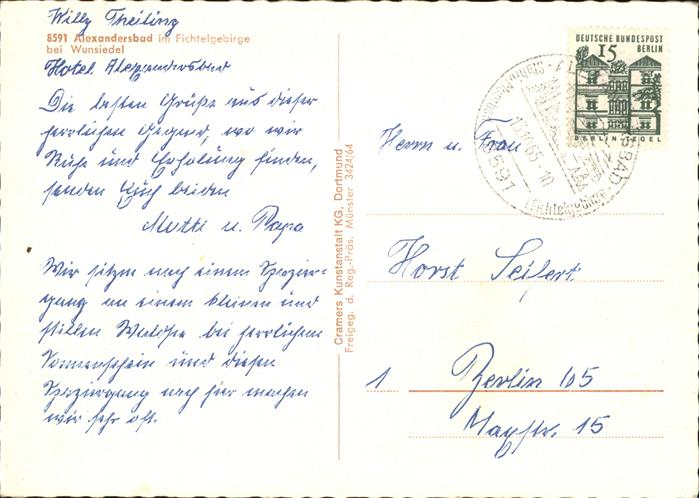 Willy Theiling
8591 Alexandersbad im Fichtelgebirge
bei Wunsiedel
Hotel Alexandersbad
Die besten Grüße aus dieser
herrlichen Gegend, wo wir
Ruhe und Erholung finden,
senden Euch beiden
Mutti u. Papa
Wir sitzen nach einem Spazier-
gang an einem kleinen und
stillen Waldsee bei herrlichem
Sonnenschein und diesen
Spaziergang nach hier machen
wir sehr oft.
Cramers Kunstanstalt KG, Dortmund
Freigeg. d. Reg.-Präs. Münster 3424/64
DEUTSCHE BUNDESPOST
15 BERLIN
BERLIN TEGEL
8591
65-10
Fichtelgebirge
Herrn u. Frau
Horst Seifert
1 Berlin 65
15